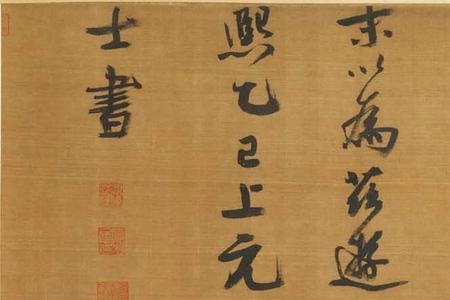 末以為茲遊
熙乙巳上元
士書